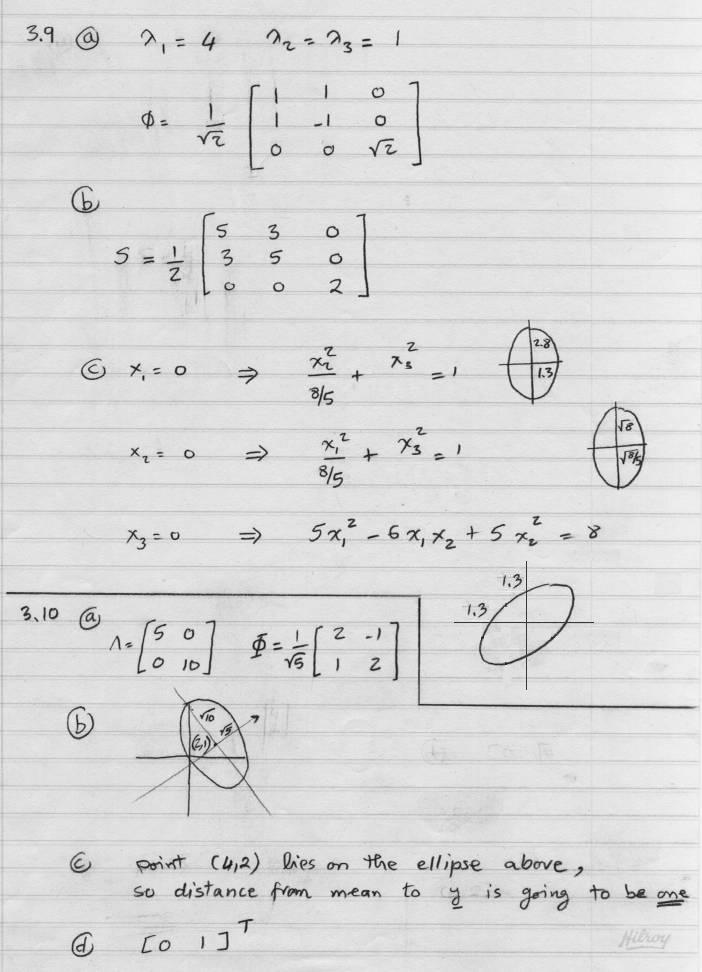 3.9 ⓐ λ₁ = 4 λ₂ = λ₃ = 1
Φ = 1/√2 [ 1 1 0
1 -1 0
0 0 √2 ]
ⓑ
S = 1/2 [ 5 3 0
3 5 0
0 0 2 ]
ⓒ x₁ = 0 ⇒ x₂²/(8/5) + x₃² = 1
2.8
1.3
x₂ = 0 ⇒ x₁²/(8/5) + x₃² = 1
√8
√8/5
x₃ = 0 ⇒ 5x₁² - 6x₁x₂ + 5x₂² = 8
1.3
1.3
3.10 ⓐ Λ = [ 5 0
0 10 ] Φ = 1/√5 [ 2 -1
1 2 ]
ⓑ
√10
√5
(2,1)
ⓒ point (4,2) lies on the ellipse above,
so distance from mean to y is going to be one
ⓓ [0 1]ᵀ
Hilroy